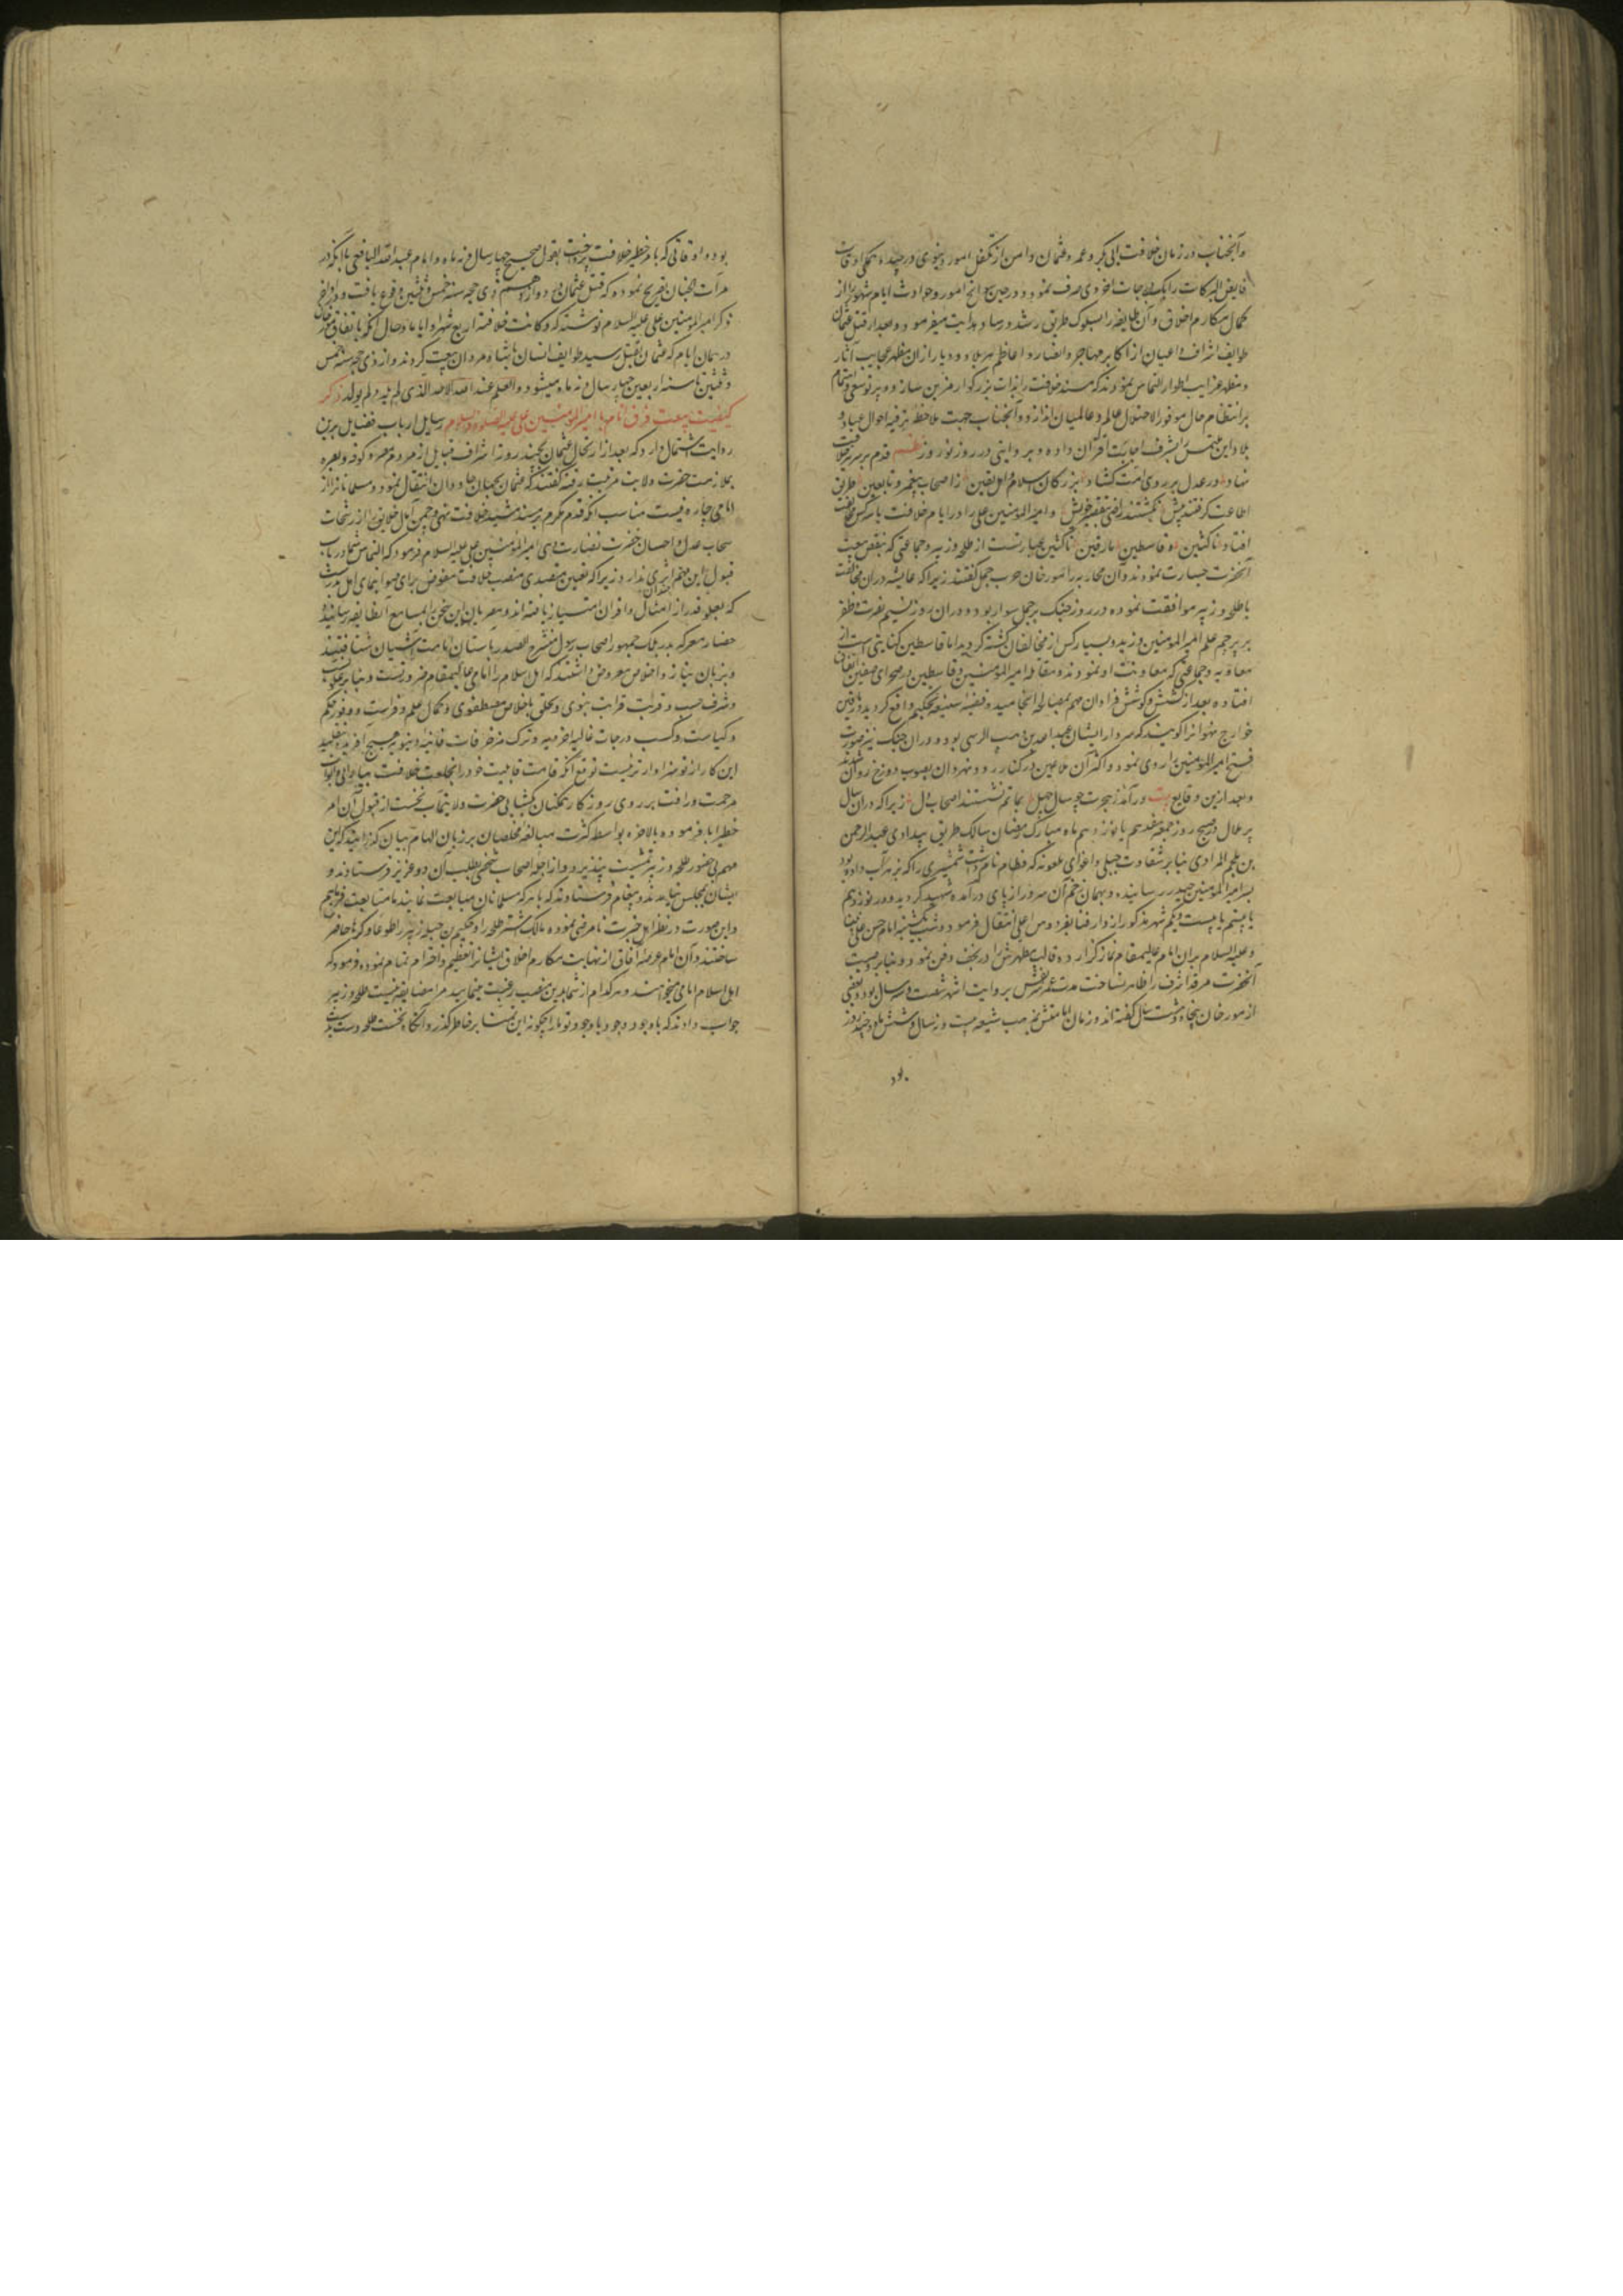 وآنجناب در زمان خلافت ابی بکر و عمر و عثمان دامن از تکفل امور دنیوی درچیده همگی اوقات
فایض البرکات را بکسب درجات اخروی صرف نمود و در حین سوانح امور و حوادث ایام شهور از
کمال مکارم اخلاق آن طایفه را بسلوک طریق رشد و رشاد هدایت میفرمود و بعد از قتل عثمان
طوایف اشراف و اعیان از اکابر مهاجر و انصار و اعاظم هر بلاد و دیار از آن مظهر عجایب آثار
و مظهر غرایب اطوار التماس نمودند که مسند خلافت را بذات بزرگوار مزین سازد و پرتو سعی و اهتمام
بر انتظام حال موفور الاختلال عالم و عالمیان اندازد و آنجناب جهت ملاحظه ترفیه احوال عباد و
بلاد این ملتمس را بشرف اجابت اقتران داده و بروایتی در روز نوروز نظم قدم بر سریر خلافت
نهاد در عدل بر روی امت گشاد بزرگان اسلام و اهل یقین از اصحاب پیغمبر و تابعین طریق
اطاعت گرفتند پیش نگشتند راضی بنقض خویش و امیرالمؤمنین علی را در ایام خلافت با سه کس مخالفت
افتاد ناکثین و قاسطین مارقین ناکثین عبارتست از طلحه و زبیر و جماعتی که بنقض بیعت
آنحضرت جسارت نمودند و آن محاربه را مورخان حرب جمل گفتند زیرا که عایشه در آن مخالفت
با طلحه و زبیر موافقت نموده در روز جنگ بر جمل سوار بود و در آن روز نسیم نصرت و ظفر
بر پرچم علم امیرالمؤمنین وزید و بسیار کس از مخالفان کشته گردید اما قاسطین کنایتی است از
معاویه و جماعتی که معاونت او نمودند و مقاتله امیرالمؤمنین و قاسطین در صحرای صفین اتفاق
افتاده بعد از کشش و کوشش فراوان مهم بمصالحه انجامید و قضیه شنیعه تحکیم واقع گردید و مارقین
خوارج نهروانرا گویند که سردار ایشان عبدالله بن وهب الراسبی بود و در آن جنگ نیز صورت
فتح امیرالمؤمنین را روی نمود و اکثر آن ملاعین در کنار رود نهروان بصوب دوزخ روان شدند
و بعد ازین وقایع بیت درآمد ز هجرت چو سال چهل بماتم نشستند اصحاب دل زیرا که در آن سال
پر ملال در صبح روز جمعه هفدهم یا نوزدهم ماه مبارک رمضان سالک طریق بیدادی عبدالرحمن
بن ملجم المرادی بنابر شقاوت جبلی و اغوای ملعونه که قطام نام داشت شمشیری را که بزهر آب داده بود
بسر امیرالمؤمنین حیدر رسانیده و بهمان زخم آن سرور از پای درآمده شهید گردید و در روز نوزدهم
یا بیستم یا بیست و یکم شهر مذکور از دار فنا بفردوس اعلی انتقال فرمود و شب یکشنبه امام حسن علی نبینا
و علیه السلام بر آن امام عالیمقام نماز گزارده قالب مطهرش را در نجف دفن نمود و بنابر وصیت
آنحضرت مرقد اشرف را ظاهر نساخت مدت عمر نفیسش بروایت اشهر شصت و سه سال بود و بعضی
از مورخان پنجاه و هشت سال گفته اند و زمان امامتش بمذهب شیعه بیست و نه سال و شش ماه و چند روز
بود
بود و اوقاتی که بامر خطیر خلافت پرداخت بقول صحیح چهار سال و نه ماه و امام عبدالله الیافعی با آنکه در
مرآت الجنان تصریح نموده که قتل عثمان در دوازدهم ذی حجه سنه خمس و ثلثین وقوع یافت در اواخر
ذکر امیرالمؤمنین علی علیه السلام نوشته که و کانت خلافته اربع شهرا و ایاما و حال آنکه باتفاق مورخان
در همان ایام که عثمان بقتل رسید طوایف انسان با شاه مردان بیعت کردند و از ذی حجه سنه خمس
و ثلثین تا سنه اربعین چهار سال و نه ماه میشود و العلم عند الله الاحد الذی لم یلد و لم یولد ذکر
کیفیت بیعت فرق انام با امیرالمؤمنین علی علیه الصلوة والسلام رسایل ارباب فضایل برین
روایت اشتمال دارد که بعد از ارتحال عثمان بچند روز اشراف قبایل از مردم مصر و کوفه و بصره
بملازمت حضرت ولایت مرتبت رفته گفتند که عثمان بجهان جاودان انتقال نمود و مسلمانانرا از
امامی چاره نیست مناسب آنکه قدم کرم بر مسند مشید خلافت نهی و چمن آمال خلایق را از رشحات
سحاب عدل و احسان خضرت و نضارت دهی امیرالمؤمنین علی علیه السلام فرمود که التماس شما در باب
قبول این مهم اثری ندارد زیرا که تعیین متصدی منصب خلافت مفوض برای صوابنمای اهل بدر است
که بعلو قدر از امثال و اقران امتیاز یافته اند و مصریان این سخن را بمسامع آنطایفه رسانیده
حضار معرکه بدر بلکه جمهور اصحاب رسول منشرح الصدر باستان امامت آشیان شتافتند
و بزبان نیاز و اخلاص معروض داشتند که اهل اسلام را امامی عالیمقام ضرورتست و بنابر علو نسب
و شرف حسب و قربت قرابت نبوی و تخلق باخلاق مصطفوی و کمال علم و فراست و وفور حکم
و کیاست و کسب درجات عالیه اخرویه و ترک مزخرفات فانیه دنیویه هیچ آفریده بتقلید
این کار از تو سزاوارتر نیست توقع آنکه قامت قابلیت خود را بخلعت خلافت بیارائی و ابواب
مرحمت و رافت بر روی روزگار همگنان گشایی حضرت ولایتمآب نخست از قبول آن امر
خطیر ابا فرموده بالاخره بواسطه کثرت مبالغه مخلصان بر زبان الهام بیان گذرانید که این
مهم بی حضور طلحه و زبیر تمشیت نپذیرد و از اجله اصحاب شخصی بطلب آن دو عزیز فرستادند و
ایشان بمجلس نیامدند و پیغام فرستادند که با هر که مسلمانان مبایعت نمایند ما متابعت فرماییم
و این صورت در نظر اهل خبرت نامرضی نموده مالک اشتر طلحه را و حکیم بن جبله زبیر را طوعا و کرها حاضر
ساختند و آن امام عرصه آفاق از نهایت مکارم اخلاق ایشانرا تعظیم و احترام تمام نموده فرمود که
اهل اسلام امامی میخواهند و هر کدام از شما بدین منصب رغبت مینمایید مرا مضایقه نیست طلحه و زبیر
جواب دادند که باوجود وجود باوجود تو ما را چگونه این تمنا بر خاطر گذرد و آنگاه نخست طلحه دست بیعت